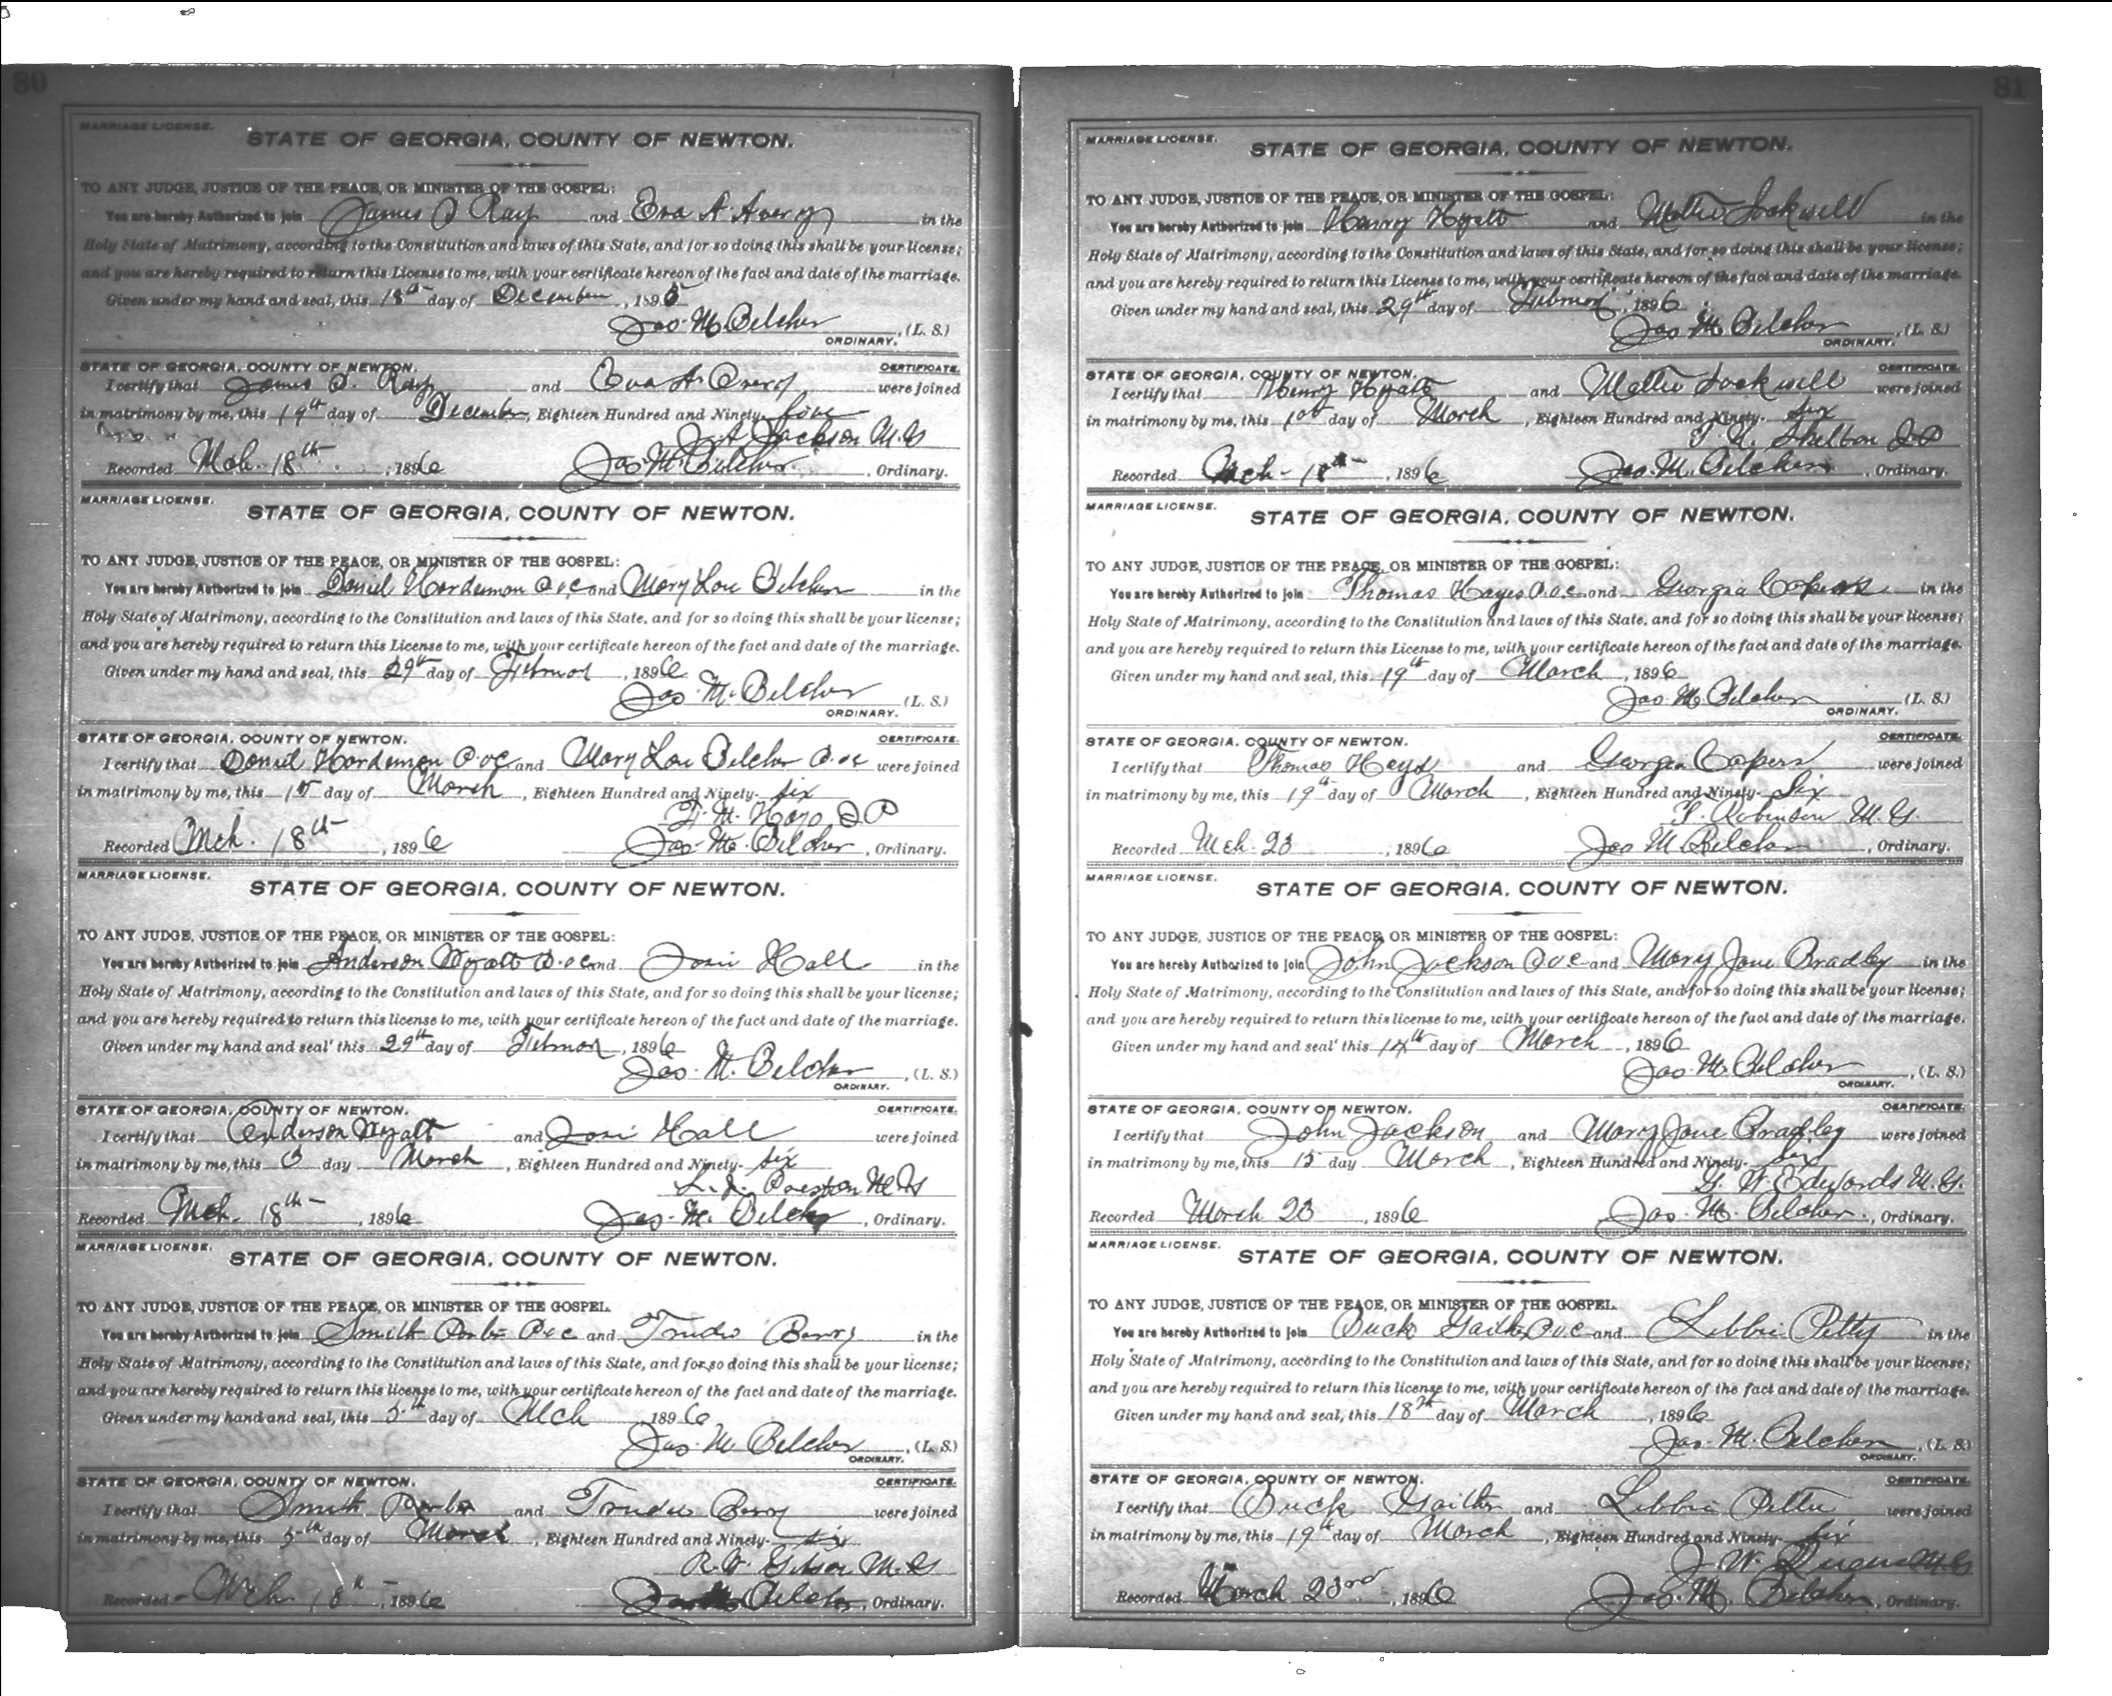 80
MARRIAGE LICENSE.
STATE OF GEORGIA, COUNTY OF NEWTON.
TO ANY JUDGE, JUSTICE OF THE PEACE, OR MINISTER OF THE GOSPEL:
You are hereby Authorized to join James Ray and Eva A. Avery in the
Holy State of Matrimony, according to the Constitution and laws of this State, and for so doing this shall be your license;
and you are hereby required to return this License to me, with your certificate hereon of the fact and date of the marriage.
Given under my hand and seal, this 18th day of December, 1895
Jas. M. Belcher, (L. S.)
ORDINARY.
STATE OF GEORGIA, COUNTY OF NEWTON. CERTIFICATE.
I certify that James Ray and Eva A. Avery were joined
in matrimony by me, this 19th day of December, Eighteen Hundred and Ninety-five
Jackson M.G
Recorded Mch. 18th, 1896 Jas. M. Belcher, Ordinary.
MARRIAGE LICENSE.
STATE OF GEORGIA, COUNTY OF NEWTON.
TO ANY JUDGE, JUSTICE OF THE PEACE, OR MINISTER OF THE GOSPEL:
You are hereby Authorized to join Daniel Hardeman P.o.c and Mary Lou Belcher in the
Holy State of Matrimony, according to the Constitution and laws of this State, and for so doing this shall be your license;
and you are hereby required to return this License to me, with your certificate hereon of the fact and date of the marriage.
Given under my hand and seal, this 29th day of, 1896
Jas. M. Belcher (L. S.)
ORDINARY.
STATE OF GEORGIA, COUNTY OF NEWTON. CERTIFICATE.
I certify that Daniel Hardeman P.o.c and Mary Lou Belcher P.oc were joined
in matrimony by me, this day of March, Eighteen Hundred and Ninety-six
J P
Recorded Mch. 18th, 1896 Jas. M. Belcher, Ordinary.
MARRIAGE LICENSE.
STATE OF GEORGIA, COUNTY OF NEWTON.
TO ANY JUDGE, JUSTICE OF THE PEACE, OR MINISTER OF THE GOSPEL:
You are hereby Authorized to join Anderson Wyatt P.oc and Hall in the
Holy State of Matrimony, according to the Constitution and laws of this State, and for so doing this shall be your license;
and you are hereby required to return this license to me, with your certificate hereon of the fact and date of the marriage.
Given under my hand and seal' this 29th day of, 1896
Jas. M. Belcher, (L. S.)
ORDINARY.
STATE OF GEORGIA, COUNTY OF NEWTON. CERTIFICATE.
I certify that Anderson Wyatt and Hall were joined
in matrimony by me, this day March, Eighteen Hundred and Ninety-six
M G
Recorded Mch. 18th, 1896 Jas. M. Belcher, Ordinary.
MARRIAGE LICENSE.
STATE OF GEORGIA, COUNTY OF NEWTON.
TO ANY JUDGE, JUSTICE OF THE PEACE, OR MINISTER OF THE GOSPEL.
You are hereby Authorized to join Smith P.o.c and Berry in the
Holy State of Matrimony, according to the Constitution and laws of this State, and for so doing this shall be your license;
and you are hereby required to return this license to me, with your certificate hereon of the fact and date of the marriage.
Given under my hand and seal, this 5th day of Mch, 1896
Jas. M Belcher, (L. S.)
ORDINARY.
STATE OF GEORGIA, COUNTY OF NEWTON. CERTIFICATE.
I certify that Smith and Berry were joined
in matrimony by me, this 5th day of March, Eighteen Hundred and Ninety-six
R. W. M.G
Recorded Mch 18th, 1896 Belcher, Ordinary.
81
MARRIAGE LICENSE.
STATE OF GEORGIA, COUNTY OF NEWTON.
TO ANY JUDGE, JUSTICE OF THE PEACE, OR MINISTER OF THE GOSPEL:
You are hereby Authorized to join Henry Hyatt and Mattie in the
Holy State of Matrimony, according to the Constitution and laws of this State, and for so doing this shall be your license;
and you are hereby required to return this License to me, with your certificate hereon of the fact and date of the marriage.
Given under my hand and seal, this 29th day of, 1896
Jas M. Belcher, (L. S.)
ORDINARY.
STATE OF GEORGIA, COUNTY OF NEWTON. CERTIFICATE.
I certify that Henry Hyatt and Mattie were joined
in matrimony by me, this 1st day of March, Eighteen Hundred and Ninety-six
Shelton J.P
Recorded Mch-18th, 1896 Jas. M. Belcher, Ordinary.
MARRIAGE LICENSE.
STATE OF GEORGIA, COUNTY OF NEWTON.
TO ANY JUDGE, JUSTICE OF THE PEACE, OR MINISTER OF THE GOSPEL:
You are hereby Authorized to join Thomas Hayes P.o.c. and Georgia in the
Holy State of Matrimony, according to the Constitution and laws of this State, and for so doing this shall be your license;
and you are hereby required to return this License to me, with your certificate hereon of the fact and date of the marriage.
Given under my hand and seal, this 19th day of March, 1896
Jas. M. Belcher (L. S.)
ORDINARY.
STATE OF GEORGIA, COUNTY OF NEWTON. CERTIFICATE.
I certify that Thomas Hays and Georgia Capers were joined
in matrimony by me, this 19th day of March, Eighteen Hundred and Ninety-Six
Robinson M. G.
Recorded Mch. 23, 1896 Jas M Belcher, Ordinary.
MARRIAGE LICENSE.
STATE OF GEORGIA, COUNTY OF NEWTON.
TO ANY JUDGE, JUSTICE OF THE PEACE, OR MINISTER OF THE GOSPEL:
You are hereby Authorized to join John Jackson P.o.c and Mary Jane Bradley in the
Holy State of Matrimony, according to the Constitution and laws of this State, and for so doing this shall be your license;
and you are hereby required to return this license to me, with your certificate hereon of the fact and date of the marriage.
Given under my hand and seal' this 14th day of March, 1896
Jas. M. Belcher, (L. S.)
ORDINARY.
STATE OF GEORGIA, COUNTY OF NEWTON. CERTIFICATE.
I certify that John Jackson and Mary Jane Bradley were joined
in matrimony by me, this 15 day March, Eighteen Hundred and Ninety-six
G. W. Edwards M. G.
Recorded March 23, 1896 Jas. M. Belcher, Ordinary.
MARRIAGE LICENSE.
STATE OF GEORGIA, COUNTY OF NEWTON.
TO ANY JUDGE, JUSTICE OF THE PEACE, OR MINISTER OF THE GOSPEL.
You are hereby Authorized to join Buck Gaither P.o.c and Libbie Petty in the
Holy State of Matrimony, according to the Constitution and laws of this State, and for so doing this shall be your license;
and you are hereby required to return this license to me, with your certificate hereon of the fact and date of the marriage.
Given under my hand and seal, this 18th day of March, 1896
Jas. M. Belcher, (L. S.)
ORDINARY.
STATE OF GEORGIA, COUNTY OF NEWTON. CERTIFICATE.
I certify that Buck Gaither and Libbie were joined
in matrimony by me, this 19th day of March, Eighteen Hundred and Ninety-six
J. W. M.G
Recorded March 23rd, 1896 Jas. M. Belcher, Ordinary.